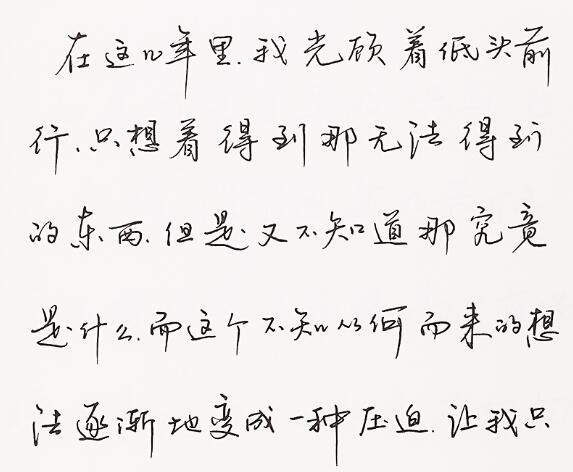 在这几年里.我光顾着低头前
行.只想着得到那无法得到
的东西.但是又不知道那究竟
是什么.而这个不知从何而来的想
法逐渐地变成一种压迫.让我只